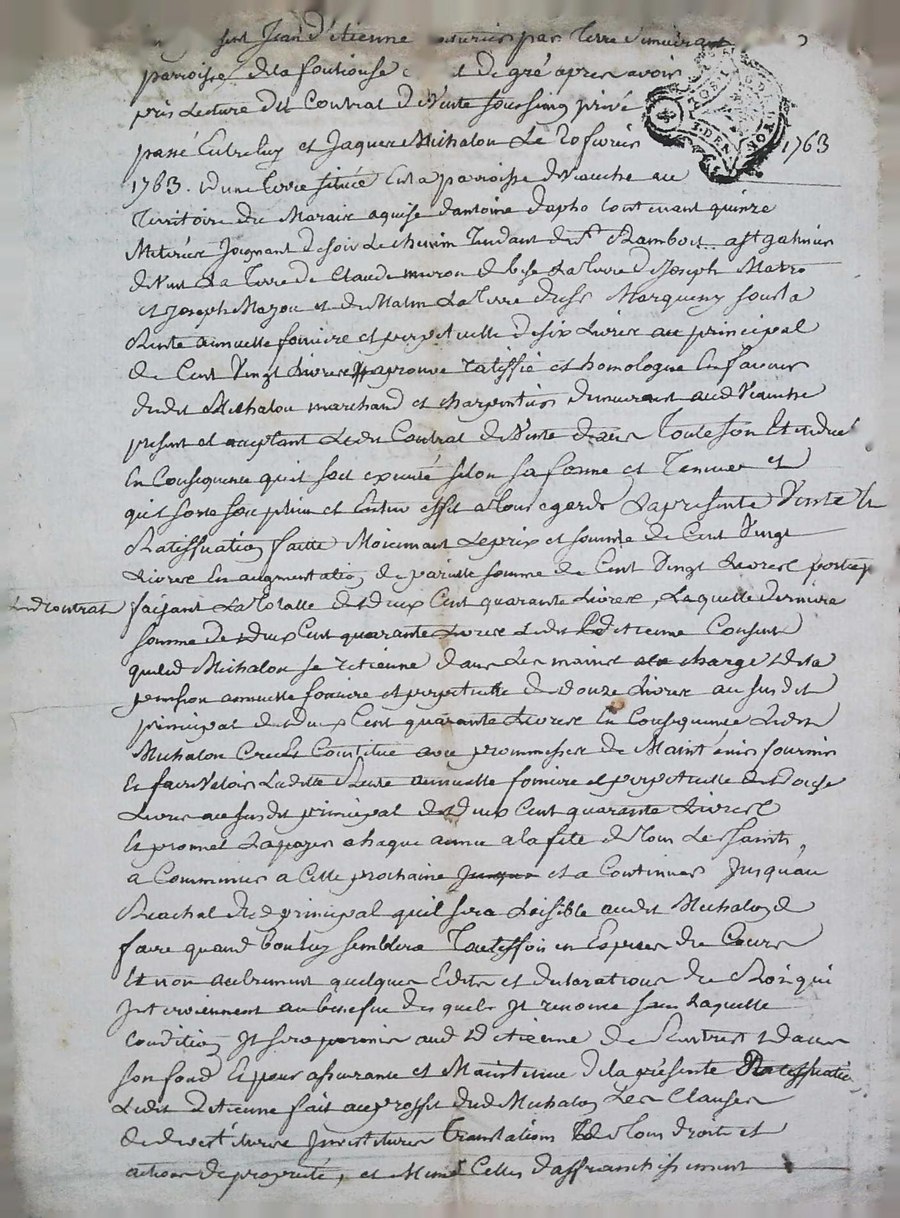 sieur Jean d'etienne par terre demeurant
parroisse de la fouliouse de gré apres avoir
pris Lecture du Contrat de Vente soussing privé
passé Entreluy et Jaques Michalon Le 20 fevrier 1763
1763. d'une terre située En la paroisse de Veauche au
Territoire du Marais aquise d'antoine dapho Contenant quinze
Meterées Joignant de soir Le chemin Tendant de St Rambert a St galmier
de Vent La Terre de Claude de bise La terre de Joseph
et Joseph Mazou et de Matin La terre du Sr sous la
Rente annuelle fonciere et perpetuelle de six Livres au principal
de Cent Vingt Livres aprouve ratiffié et homologue En faveur
dudit Michalon marchand et charpentier demeurant aud Veauche
present et acceptant Ledit Contrat de Vente dans Toute son Etendue
En Consequence qu'il soit executé selon sa forme et Teneur et
qu'il sorte son plein et Entier effet a son egard La presente Vente Et
Ratiffication faitte Moienant Le prix et somme de Cent Vingt
Livres En augmentation de pareille somme de Cent Vingt Livres portée
aud contrat faisant La Totalle de deux Cent quarante Livres, Laquelle derniere
somme de deux Cent quarante Livres Ledit Detienne Consent
que led Michalon se retienne dans Les mains a la charge de la
pension annuelle fonciere et perpetuelle de douze Livres au susdit
principal de deux Cent quarante Livres En Consequence Ledit
Michalon Crée et Constitue avec prommesse de Maintenir fournir
Et faire Valoir Laditte Rente annuelle fonciere et perpetuelle de douze
Livres au susdit principal de deux Cent quarante Livres
Et promet La payer chaque année a la fête de Tous Les Saints,
a Commencer a Celle prochaine et a Continuer Jusqu'au
Rachat dud principal qu'il sera Loisible audit Michalon de
faire quand bon luy semblera Touteffois en Especes de Cours
Et non autrement quelques Edits et declarations du Roi qui
Interviennent au benefice desquels Il renonce sans Laquelle
Condition Il sera permis aud Detienne de Rentrer dans
son fond Et pour assurance et Maintenue de la presente Ratiffication
Ledit Detienne fait au proffit dud Michalon Les Clauses
de devestiture Investiture Translation de tous droits et
actions de propriété, et Meme Celles d'affranchissement